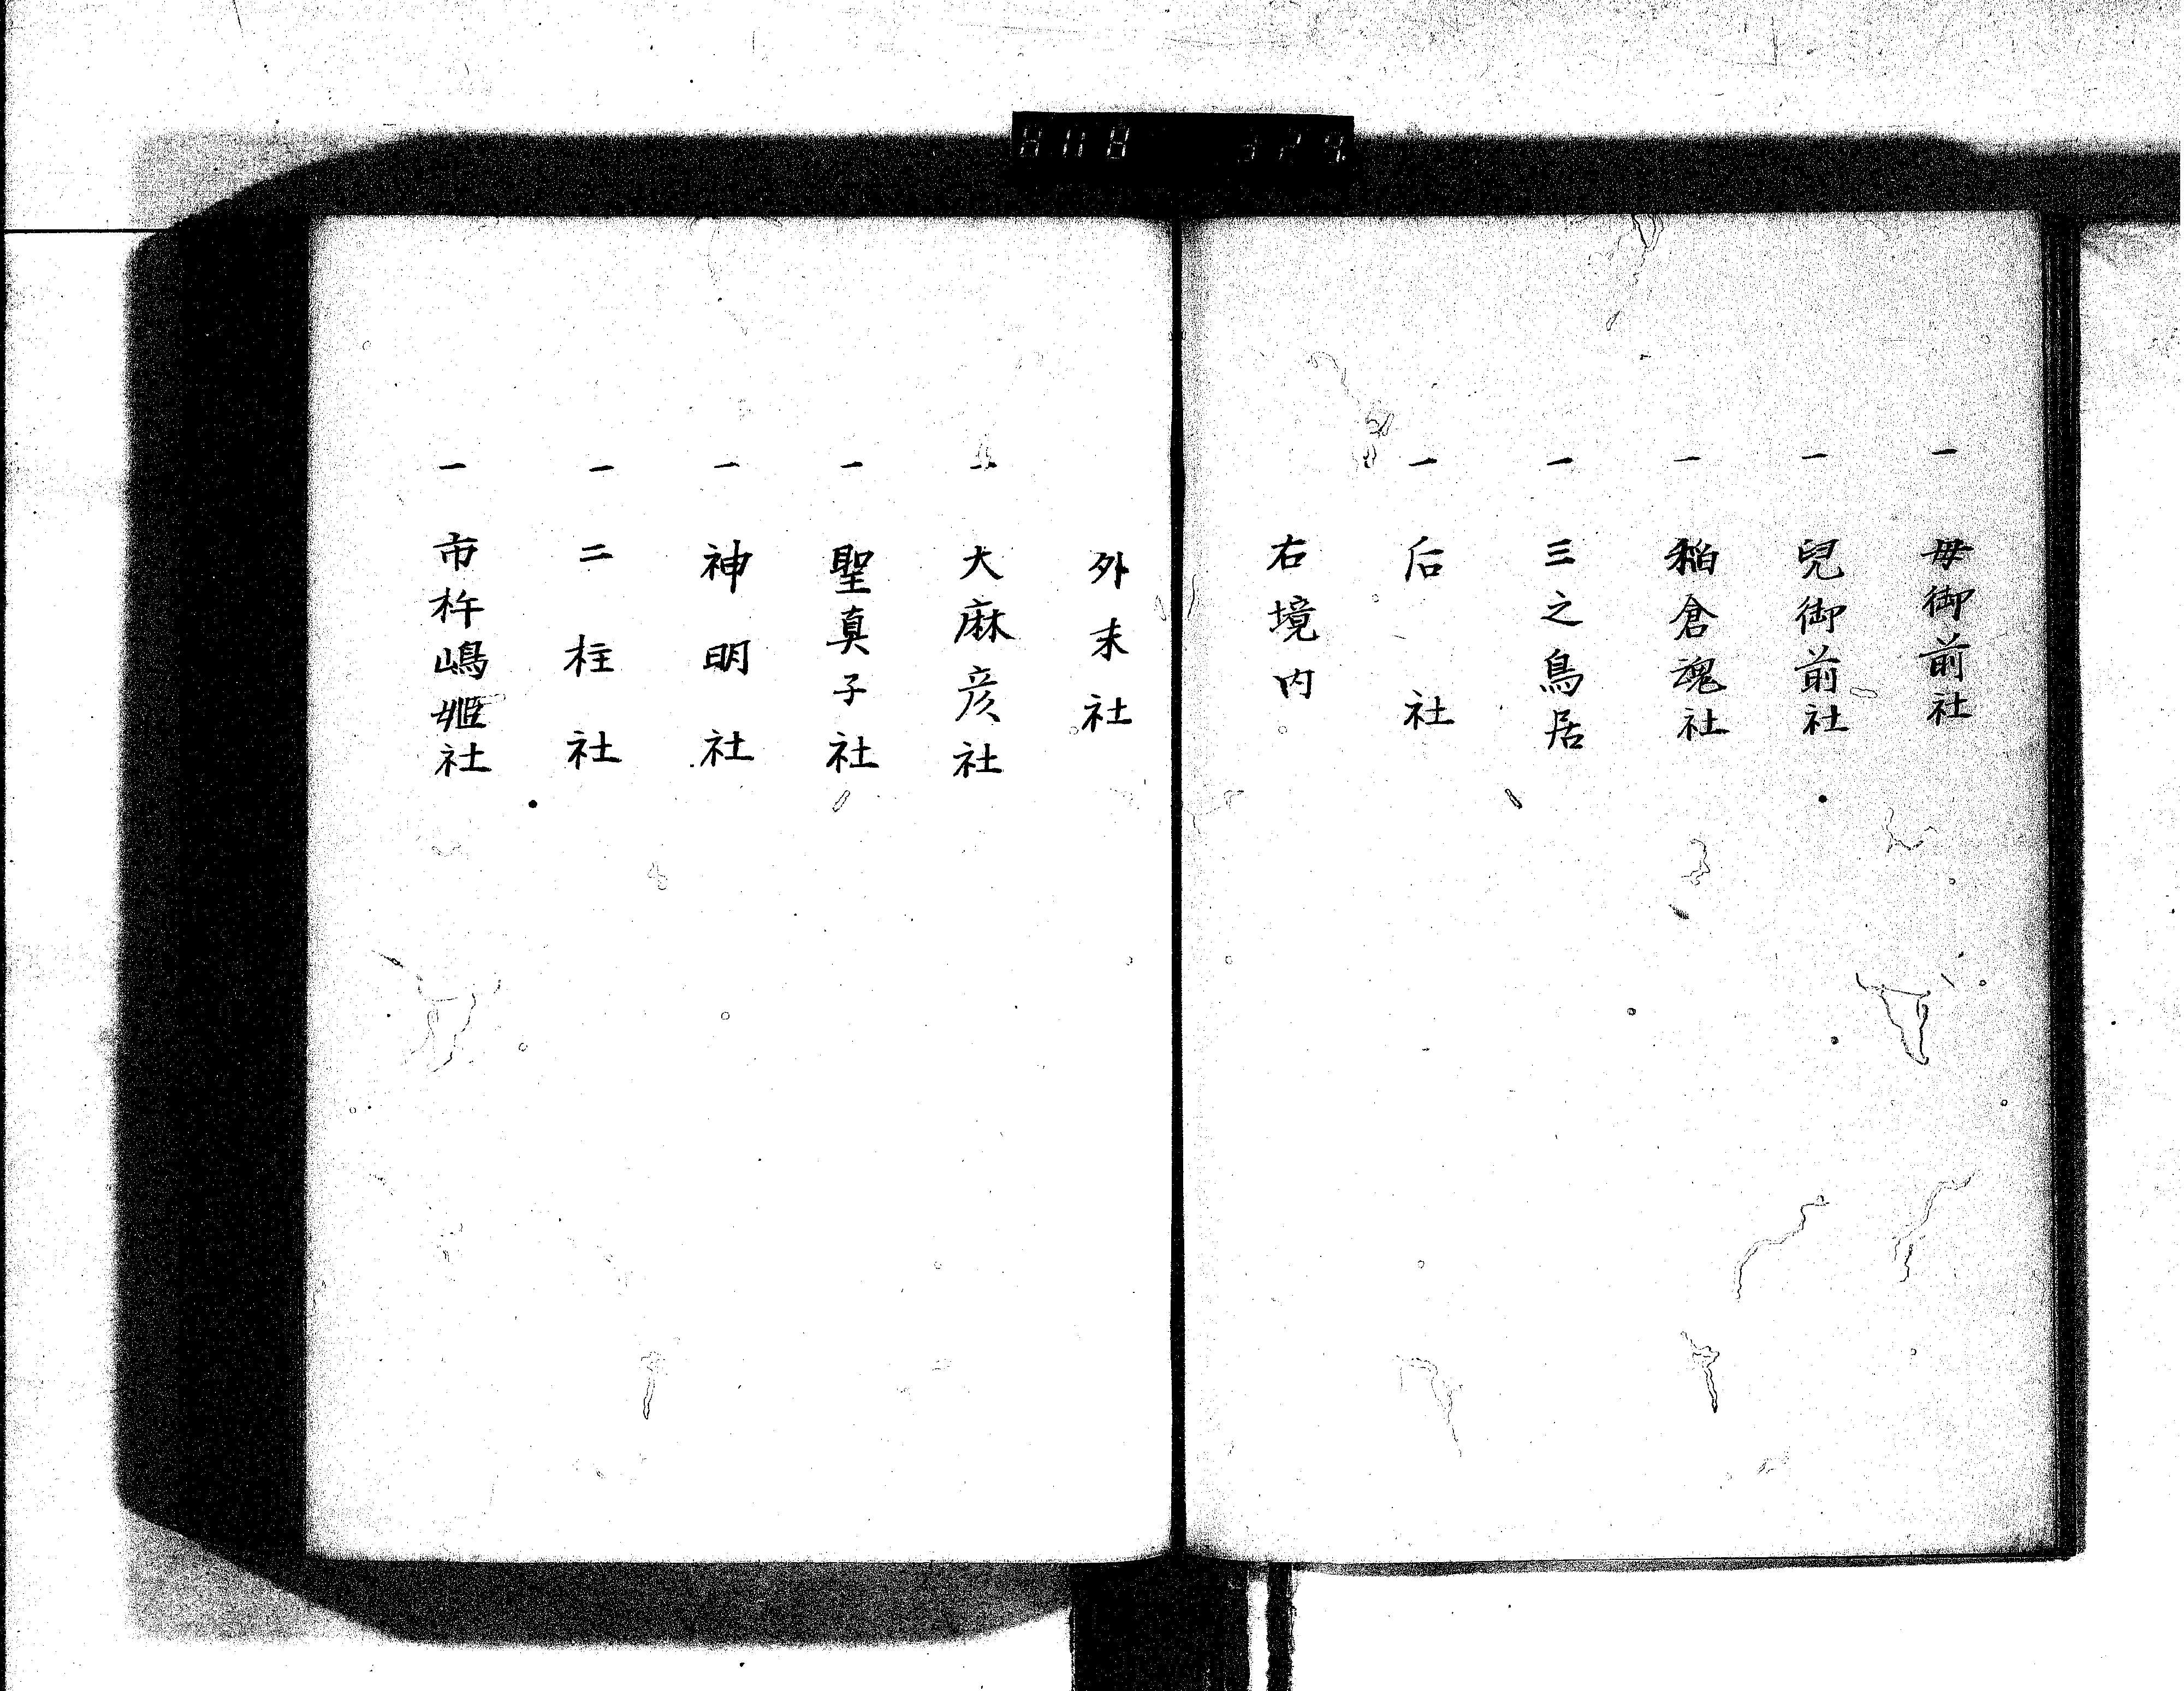 一 母御前社
一 兒御前社
一 稲倉魂社
一 三之鳥居
一 后社
右境内
外末社
一 大麻彦社
一 聖真子社
一 神明社
一 二柱社
一 市杵嶋姫社